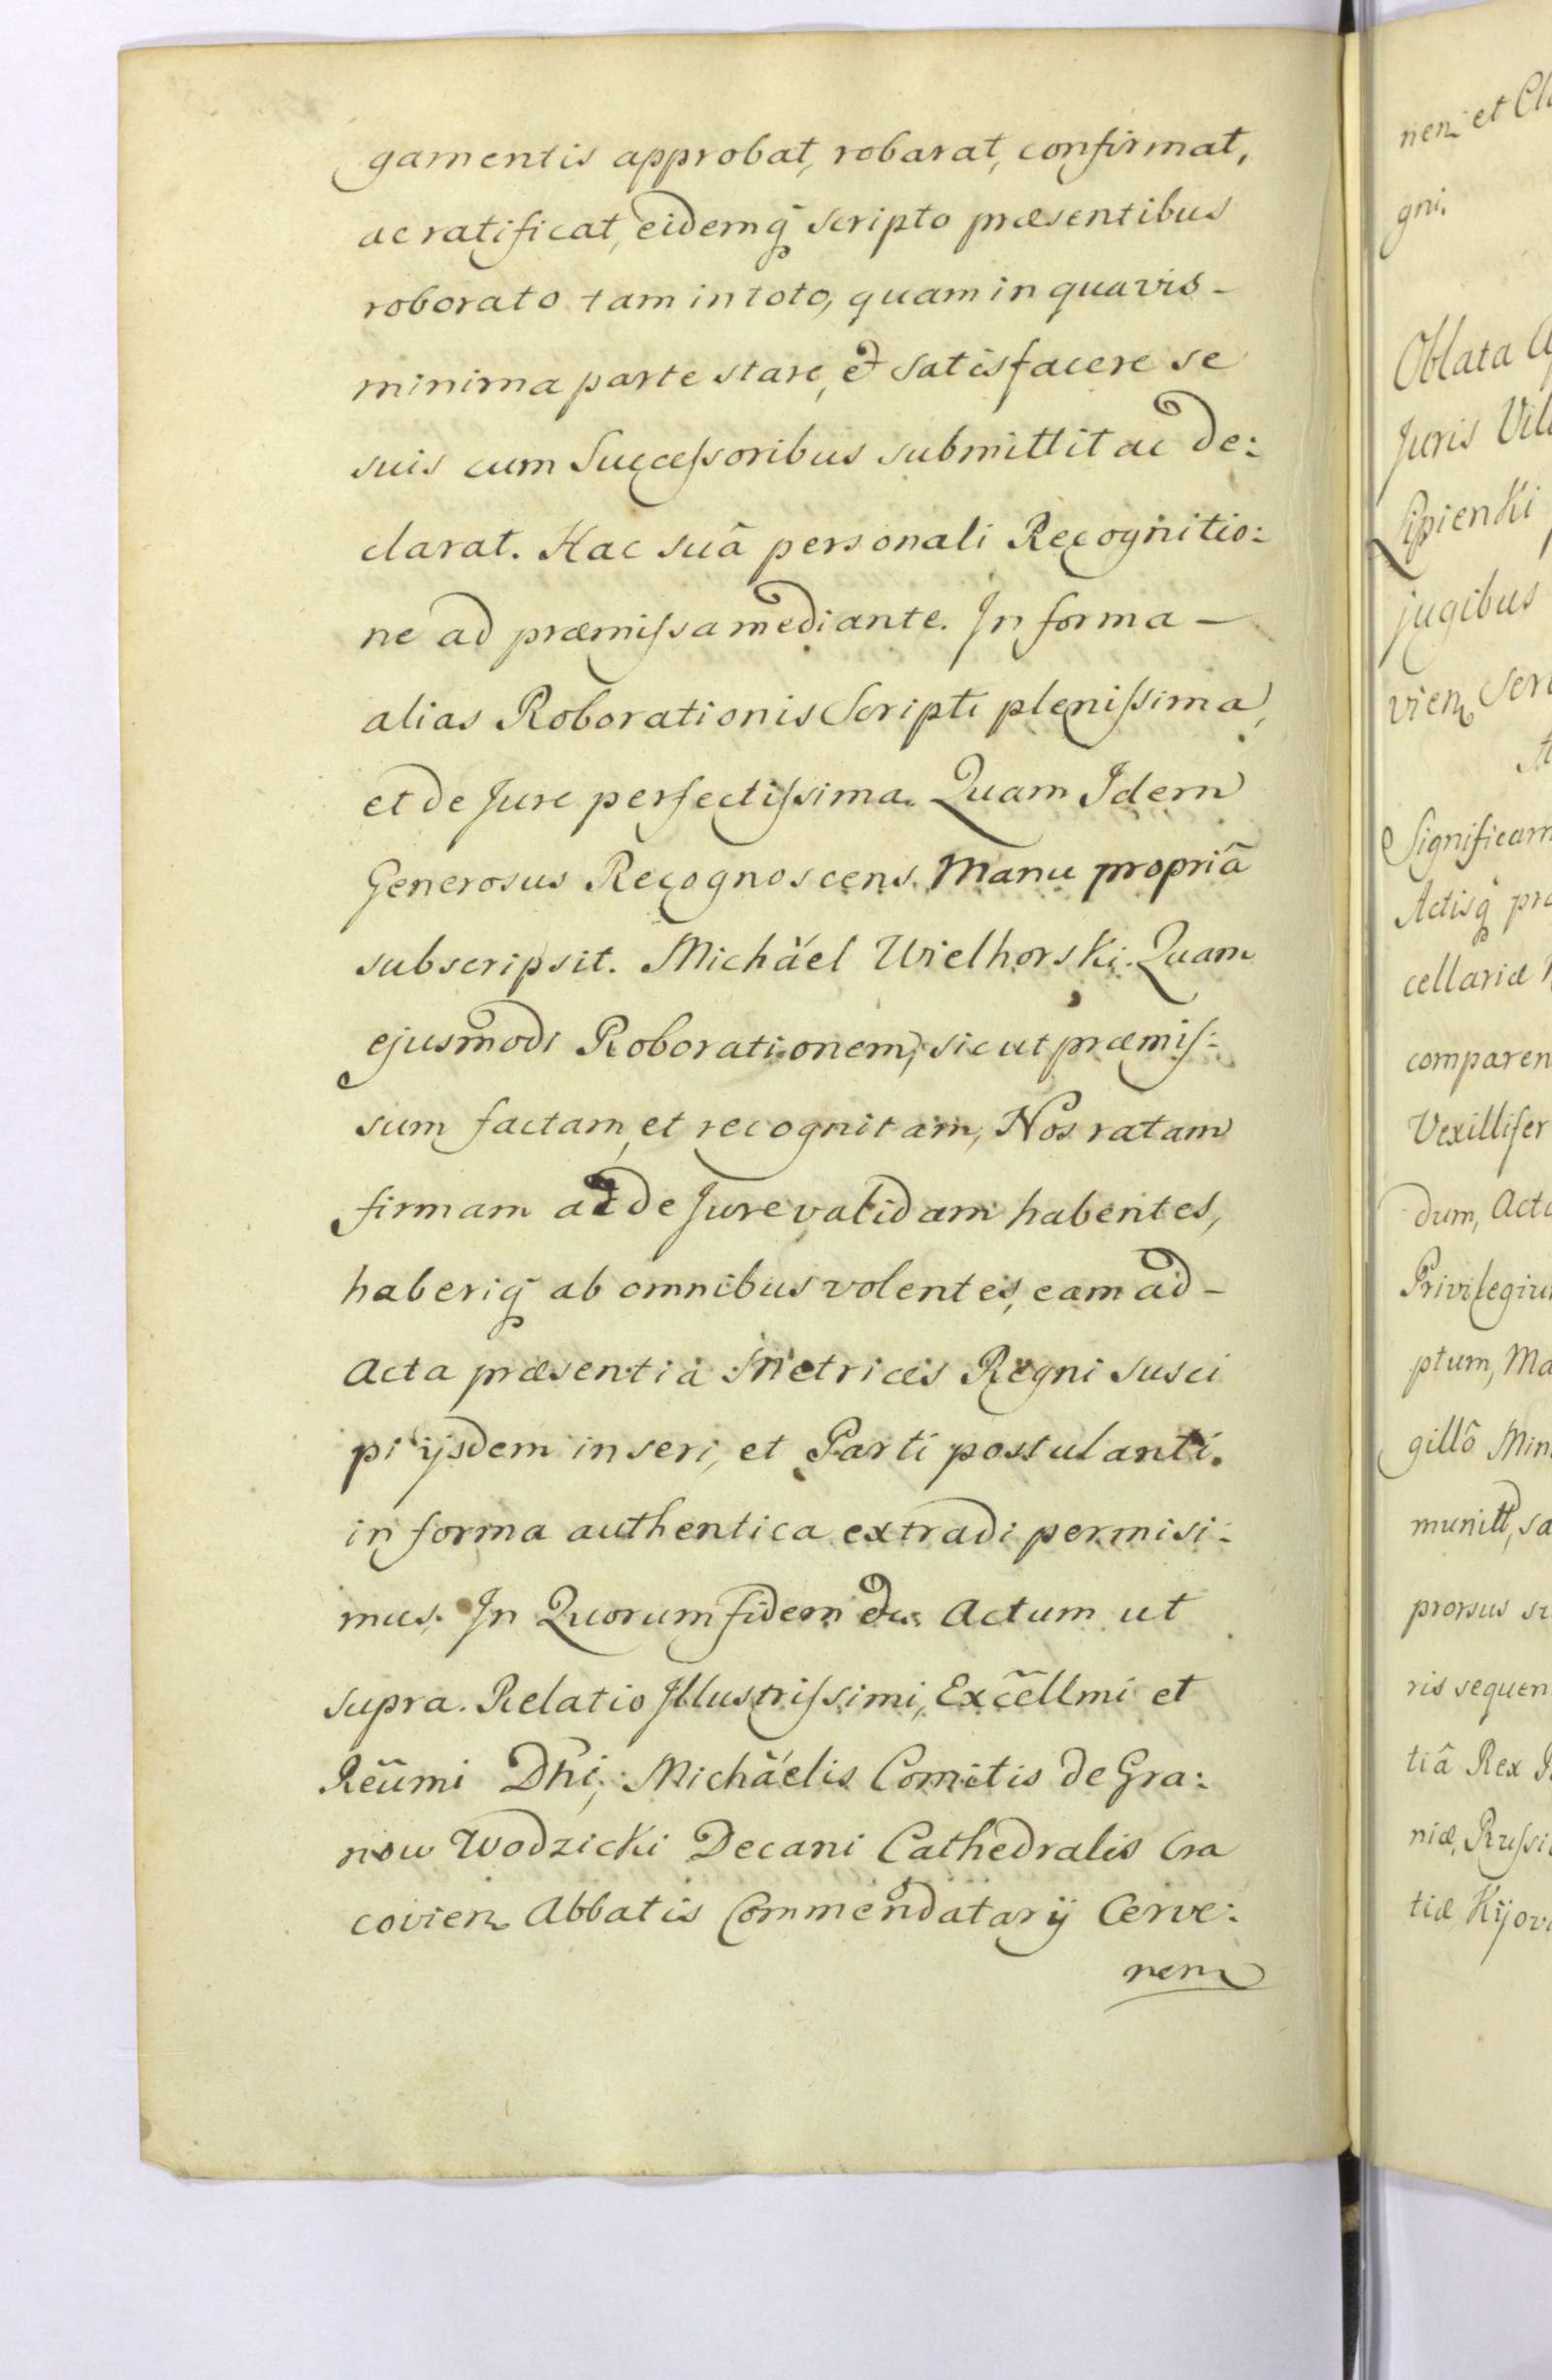 gamentis approbat, robarat, confirmat,
ac ratificat, eidemq̃ scripto præsentibus
roborato tam in toto, quam in quavis -
minima parte stare, et satisfacere se
suis cum Succeſsoribus submittit ac de:
clarat. Hac suâ personali Recognitio:
ne ad præmiſsa mediante. In forma -
alias Roborationis Scripti pleniſsima,
et de Jure perfectiſsima. Quam Idem
Generosus Recognoscens. Manu propriâ
subscripsit. Michäel Wielhorski. Quam
ejusmodi Roborationem, sicut præmiſ:
sum factam, et recognitam, Nos ratam
firmam ac de Jure validam habentes,
haberiq̃ ab omnibus volentes, eam ad -
Acta præsentia Metrices Regni susci
pi ijsdem inseri, et Parti postulanti.
in forma authentica extradi permisi:
mus. In Quorum fidem etc. Actum ut
supra. Relatio Illustriſsimi, Exc̃ellmi et
Reũmi Dñi, Michäelis Comitis de Gra:
now Wodzicki Decani Cathedralis Cra
covien Abbatis Commendatarij Cerve:
nem
nen et Cl
gni.
Oblata
Juris Vil
Lipienski
jugibus
vien, Ser
Significam
Actisq̃ pr
cellariæ
comparen
Vexillifer
dum, Acta
Privilegiu
ptum, Ma
gillô Min
munitt, sa
prorsus su
ris sequen
tiâ Rex P
niæ, Ruſsi
tiæ, Kijov